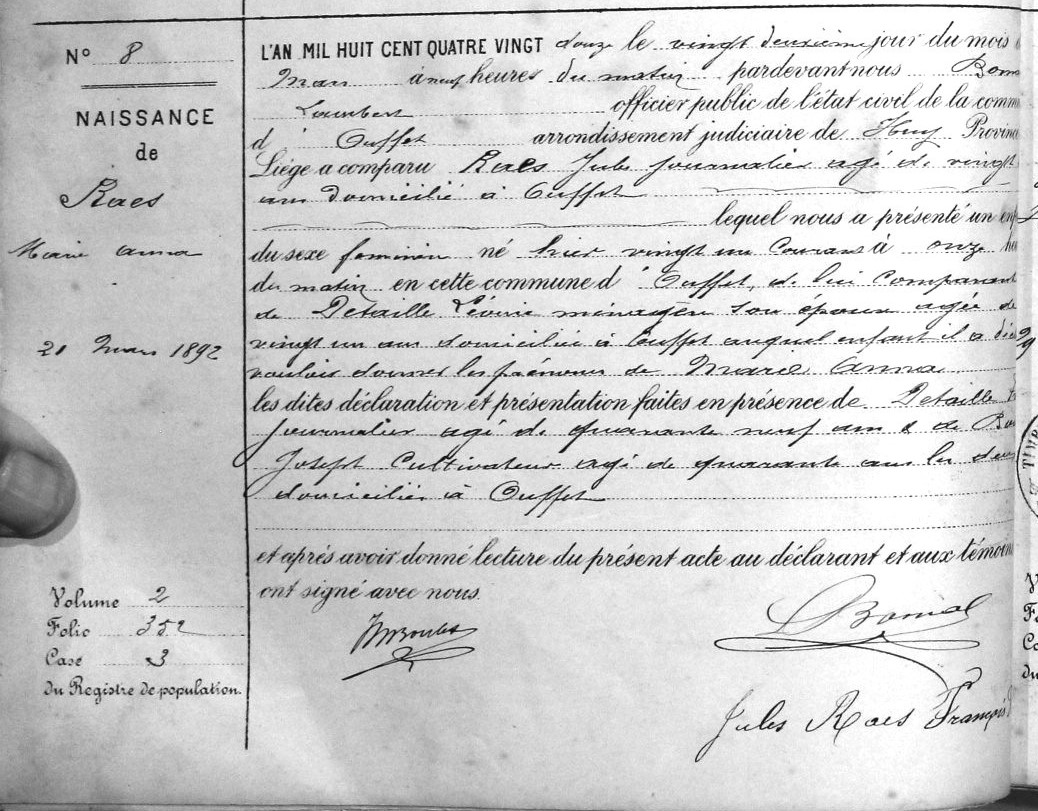 N° 8
NAISSANCE
de
Raes
Marie Anna
21 Mars 1892
Volume 2
Folio 352
Case 3
du Registre de population.
L'AN MIL HUIT CENT QUATRE VINGT douze le vingt deuxième jour du mois
Mars à neuf heures du matin pardevant nous
Lambert officier public de l'état civil de la comm
d' Ouffet arrondissement judiciaire de Huy Provinc
Liége a comparu Raes Jules journalier agé de vingt
ans domicilié à Ouffet
lequel nous a présenté un enf
du sexe féminin né hier vingt un courant à onze
du matin en cette commune d' Ouffet, de lui comparant
de Detaille ménagère son épouse agée de
vingt un ans domiciliée à Ouffet auquel enfant il a
vouloir donner les prénoms de Marie Anna
les dites déclaration et présentation faites en présence de Detaille
journalier agé de quarante neuf ans & de
Joseph Cultivateur agé de quarante ans les deux
domiciliés à Ouffet
et aprés avoir donné lecture du présent acte au déclarant et aux témoin
ont signé avec nous.
Jules Raes François